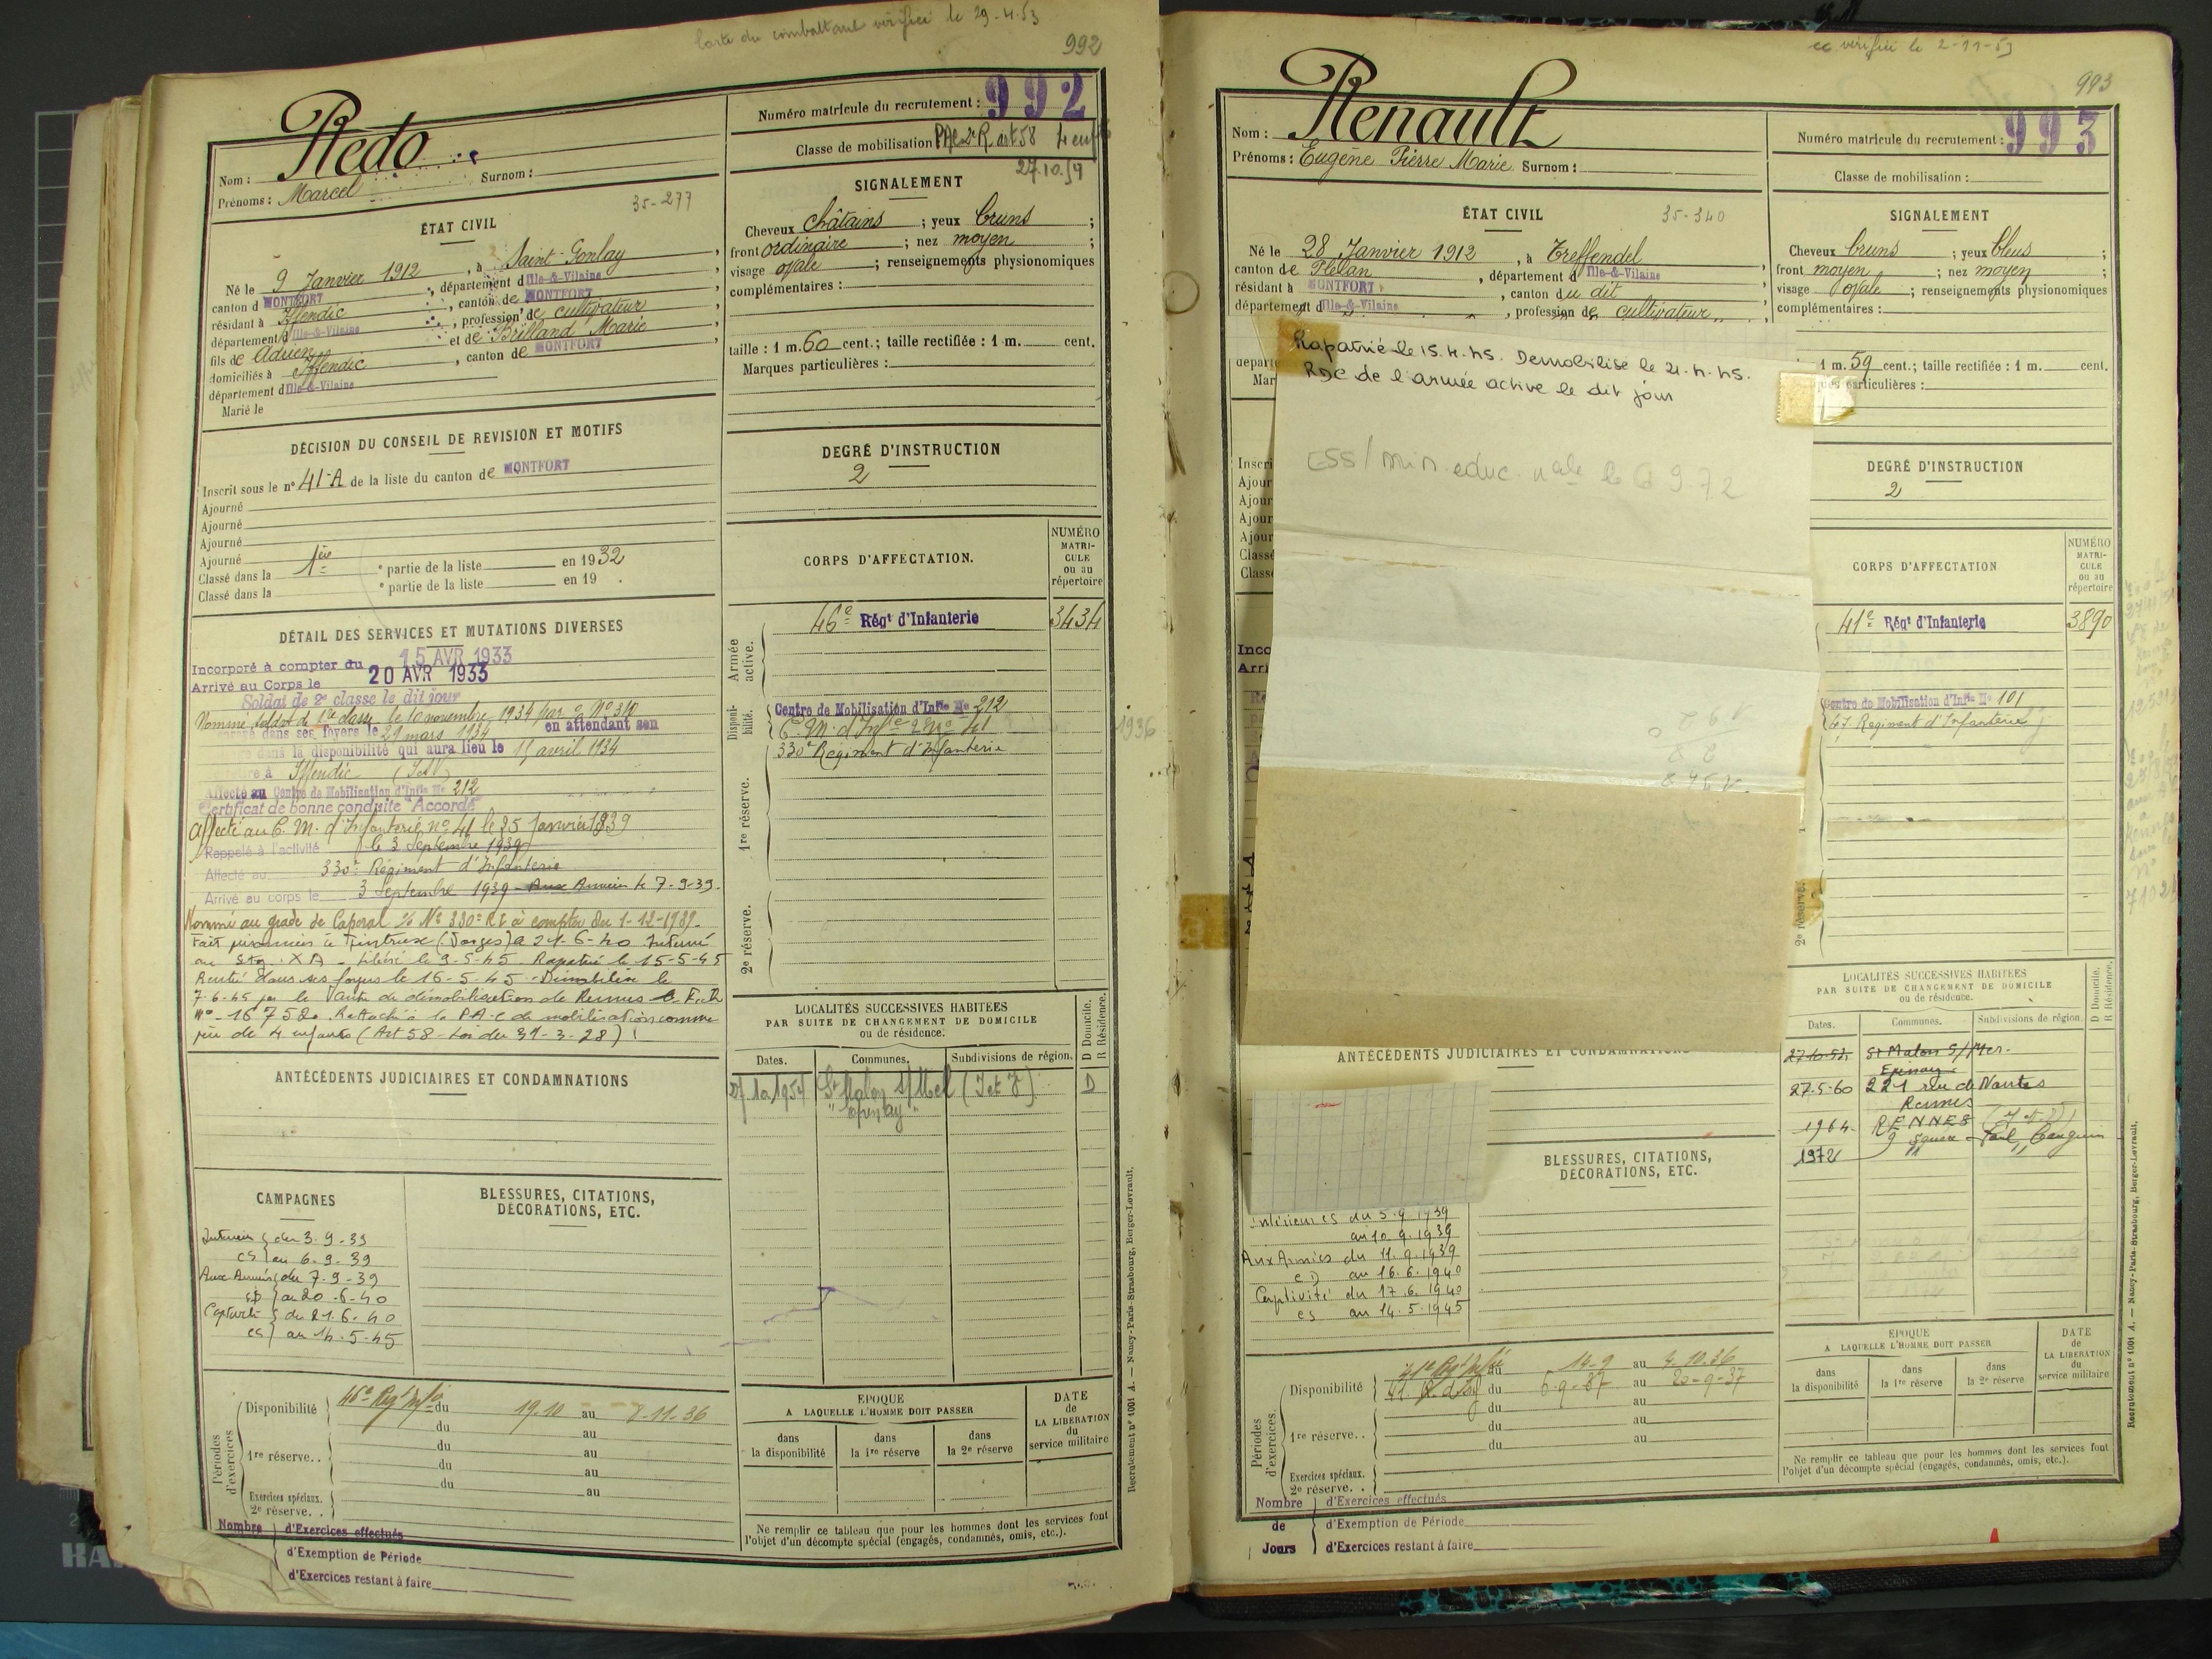 Carte du combattant vérifiée le 29-4-53
992
Nom : Redo
Prénoms : Marcel Surnom :
Numéro matricule du recrutement : 992
Classe de mobilisation PAC 2e R art 58 4 enf
27.10.54
ÉTAT CIVIL
35-277
Né le 9 Janvier 1912, à Saint-Gonlay,
canton d MONTFORT, département d Ille-&-Vilaine,
résidant à Iffendic, canton de MONTFORT,
département d Ille-&-Vilaine, profession de cultivateur,
fils de Adrien et de Brilland Marie,
domiciliés à Iffendic, canton de MONTFORT,
département d Ille-&-Vilaine
Marié le
SIGNALEMENT
Cheveux châtains ; yeux bruns ;
front ordinaire ; nez moyen ;
visage ovale ; renseignements physionomiques
complémentaires :
taille : 1 m. 60 cent.; taille rectifiée : 1 m. cent.
Marques particulières :
DÉCISION DU CONSEIL DE REVISION ET MOTIFS
Inscrit sous le n° 41-A de la liste du canton de MONTFORT
Ajourné
Ajourné
Ajourné
Ajourné
Classé dans la 1ère e partie de la liste en 1932
Classé dans la e partie de la liste en 19 .
DEGRÉ D'INSTRUCTION
2
DÉTAIL DES SERVICES ET MUTATIONS DIVERSES
Incorporé à compter du 15 AVR 1933
Arrivé au Corps le 20 AVR 1933
Soldat de 2e classe le dit jour
Nommé soldat de 1re classe le 10 novembre 1934 par o. No 310
dans ses foyers le 21 mars 1934 en attendant son
dans la disponibilité qui aura lieu le 15 avril 1934
à Iffendic (I et V)
Affecté au Centre de Mobilisation d'Infie No 212
Certificat de bonne conduite "Accordé"
affecté au C. M. d'Infanterie no 41 le 25 Janvier 1939
Rappelé à l'activité le 3 Septembre 1939
Affecté au 330e Régiment d'Infanterie
Arrivé au corps le 3 Septembre 1939 - Aux Armées le 7-9-39.
Nommé au grade de Caporal o/o No 330e RI à compter du 1-12-1939.
Fait prisonnier à Taintrux (Vosges) le 21-6-40 Interné
au Stg. X A - Libéré le 9-5-45 Rapatrié le 15-5-45
Rentré dans ses foyers le 16-5-45 - Démobilisé le
7-6-45 par le Centre de démobilisation de Rennes
No 16752. Rattaché à la P.A.C de mobilisation comme
père de 4 enfants (Art 58 - Loi du 31-3-28)
CORPS D'AFFECTATION.
NUMÉRO MATRICULE ou au répertoire
Armée active.
46e Régt d'Infanterie 3434
Disponibilité.
Centre de Mobilisation d'Infie No 212
C. M. d'Infie No 41
1936
330e Régiment d'Infanterie
1re réserve.
2e réserve.
LOCALITÉS SUCCESSIVES HABITÉES
PAR SUITE DE CHANGEMENT DE DOMICILE
ou de résidence.
D Domicile.
R Résidence.
Dates. Communes. Subdivisions de région.
27.10.1954 St Malon s/ Mel (I et V) D
"Epinay"
ANTÉCÉDENTS JUDICIAIRES ET CONDAMNATIONS
CAMPAGNES
Intérieur du 3-9-39
CS au 6-9-39
Aux Armées du 7-9-39
CD au 20-6-40
Captivité du 21.6.40
CS au 14-5-45
BLESSURES, CITATIONS,
DÉCORATIONS, ETC.
Périodes d'exercices
Disponibilité 46e Régt Infie du 19.10 au 8-11-36
du au
1re réserve.. du au
du au
du au
Exercices spéciaux.
2e réserve. . au
Nombre d'Exercices effectués
d'Exemption de Période
d'Exercices restant à faire
EPOQUE
A LAQUELLE L'HOMME DOIT PASSER
dans la disponibilité
dans la 1re réserve
dans la 2e réserve
DATE de LA LIBÉRATION du service militaire
Ne remplir ce tableau que pour les hommes dont les services font
l'objet d'un décompte spécial (engagés, condamnés, omis, etc.).
Recrutement n° 1001 A. — Nancy-Paris-Strasbourg, Berger-Levrault.
cc vérifiée le 2-11-53
993
Nom : Renault
Prénoms : Eugène Pierre Marie Surnom :
Numéro matricule du recrutement : 993
Classe de mobilisation :
ÉTAT CIVIL
35-340
Né le 28 Janvier 1912, à Treffendel
canton de Plélan, département d Ille-&-Vilaine,
résidant à MONTFORT, canton du dit,
département d Ille-&-Vilaine, profession de cultivateur,
SIGNALEMENT
Cheveux bruns ; yeux bleus ;
front moyen ; nez moyen ;
visage ovale ; renseignements physionomiques
complémentaires :
1 m. 59 cent.; taille rectifiée : 1 m. cent.
particulières :
Rapatrié le 15.4.45. Démobilisé le 21.4.45.
RDC de l'armée active le dit jour
ESS/min. educ. nale le 6 9.72
DEGRÉ D'INSTRUCTION
2
CORPS D'AFFECTATION
NUMÉRO MATRICULE ou au répertoire
41e Régt d'Infanterie 3890
Centre de Mobilisation d'Infie No 101
47 Régiment d'Infanterie
2e réserve.
LOCALITÉS SUCCESSIVES HABITÉES
PAR SUITE DE CHANGEMENT DE DOMICILE
ou de résidence.
D Domicile.
R Résidence.
Dates. Communes. Subdivisions de région
27-10-52. St Malon S/Mer.
Epinay.
27.5-60 221 rue de Nantes
Rennes
1964 RENNES
1972 9 square Paul Gauguin
ANTÉCÉDENTS JUDICIAIRES ET CONDAMNATIONS
BLESSURES, CITATIONS,
DÉCORATIONS, ETC.
Intérieur CS du 5.9.1939
au 10.9.1939
Aux Armées du 11.9.1939
CD au 16.6.1940
Captivité du 17.6.1940
CS au 14.5.1945
Périodes d'exercices.
Disponibilité 41e Régt Infie du 14-9 au 4.10.36
41. du 6-9-37 au 20-9-37
du au
1re réserve.. du au
du au
Exercices spéciaux.
2e réserve. .
Nombre de Jours
d'Exercices effectués
d'Exemption de Période
d'Exercices restant à faire
EPOQUE
A LAQUELLE L'HOMME DOIT PASSER
dans la disponibilité
dans la 1re réserve
dans la 2e réserve
DATE de LA LIBÉRATION du service militaire
Ne remplir ce tableau que pour les hommes dont les services font
l'objet d'un décompte spécial (engagés, condamnés, omis, etc.).
Recrutement n° 1001 A. — Nancy-Paris-Strasbourg, Berger-Levrault.